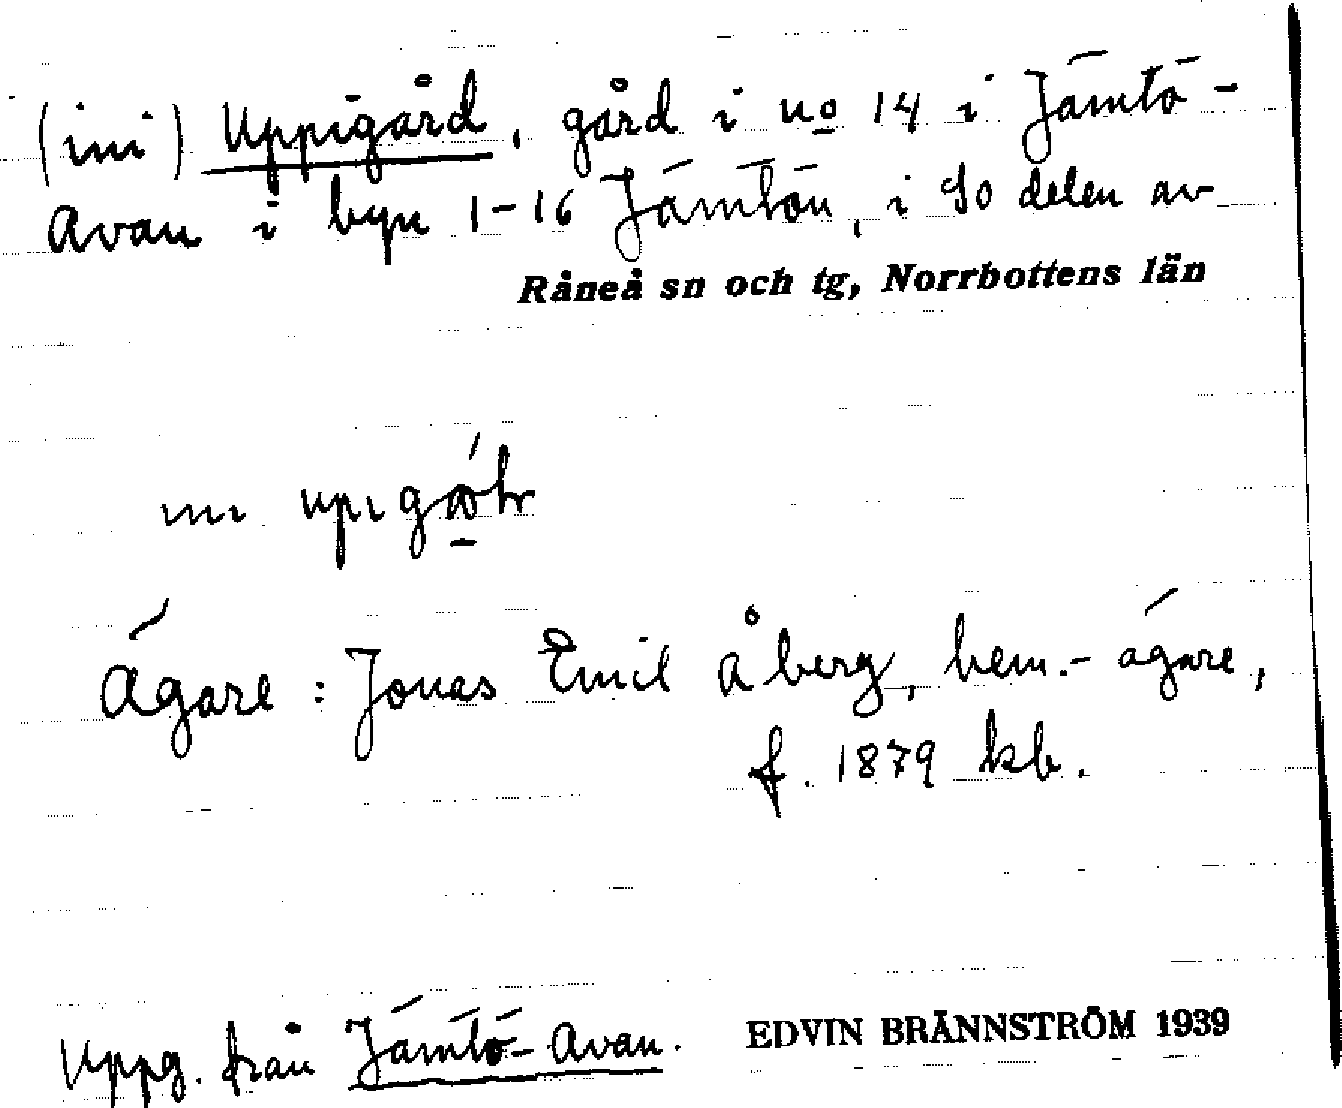 (ini) Uppigård, gård i no 14 i Jämtö-
Avan i byn 1-16 Jämtön, i SO delen av
Råneå sn och tg, Norrbottens län
ini
Ägare: Jonas Emil Åberg, hem.-ägare,
f. 1879 kb.
Uppg. från Jämtö-Avan.
EDVIN BRÄNNSTRÖM 1939